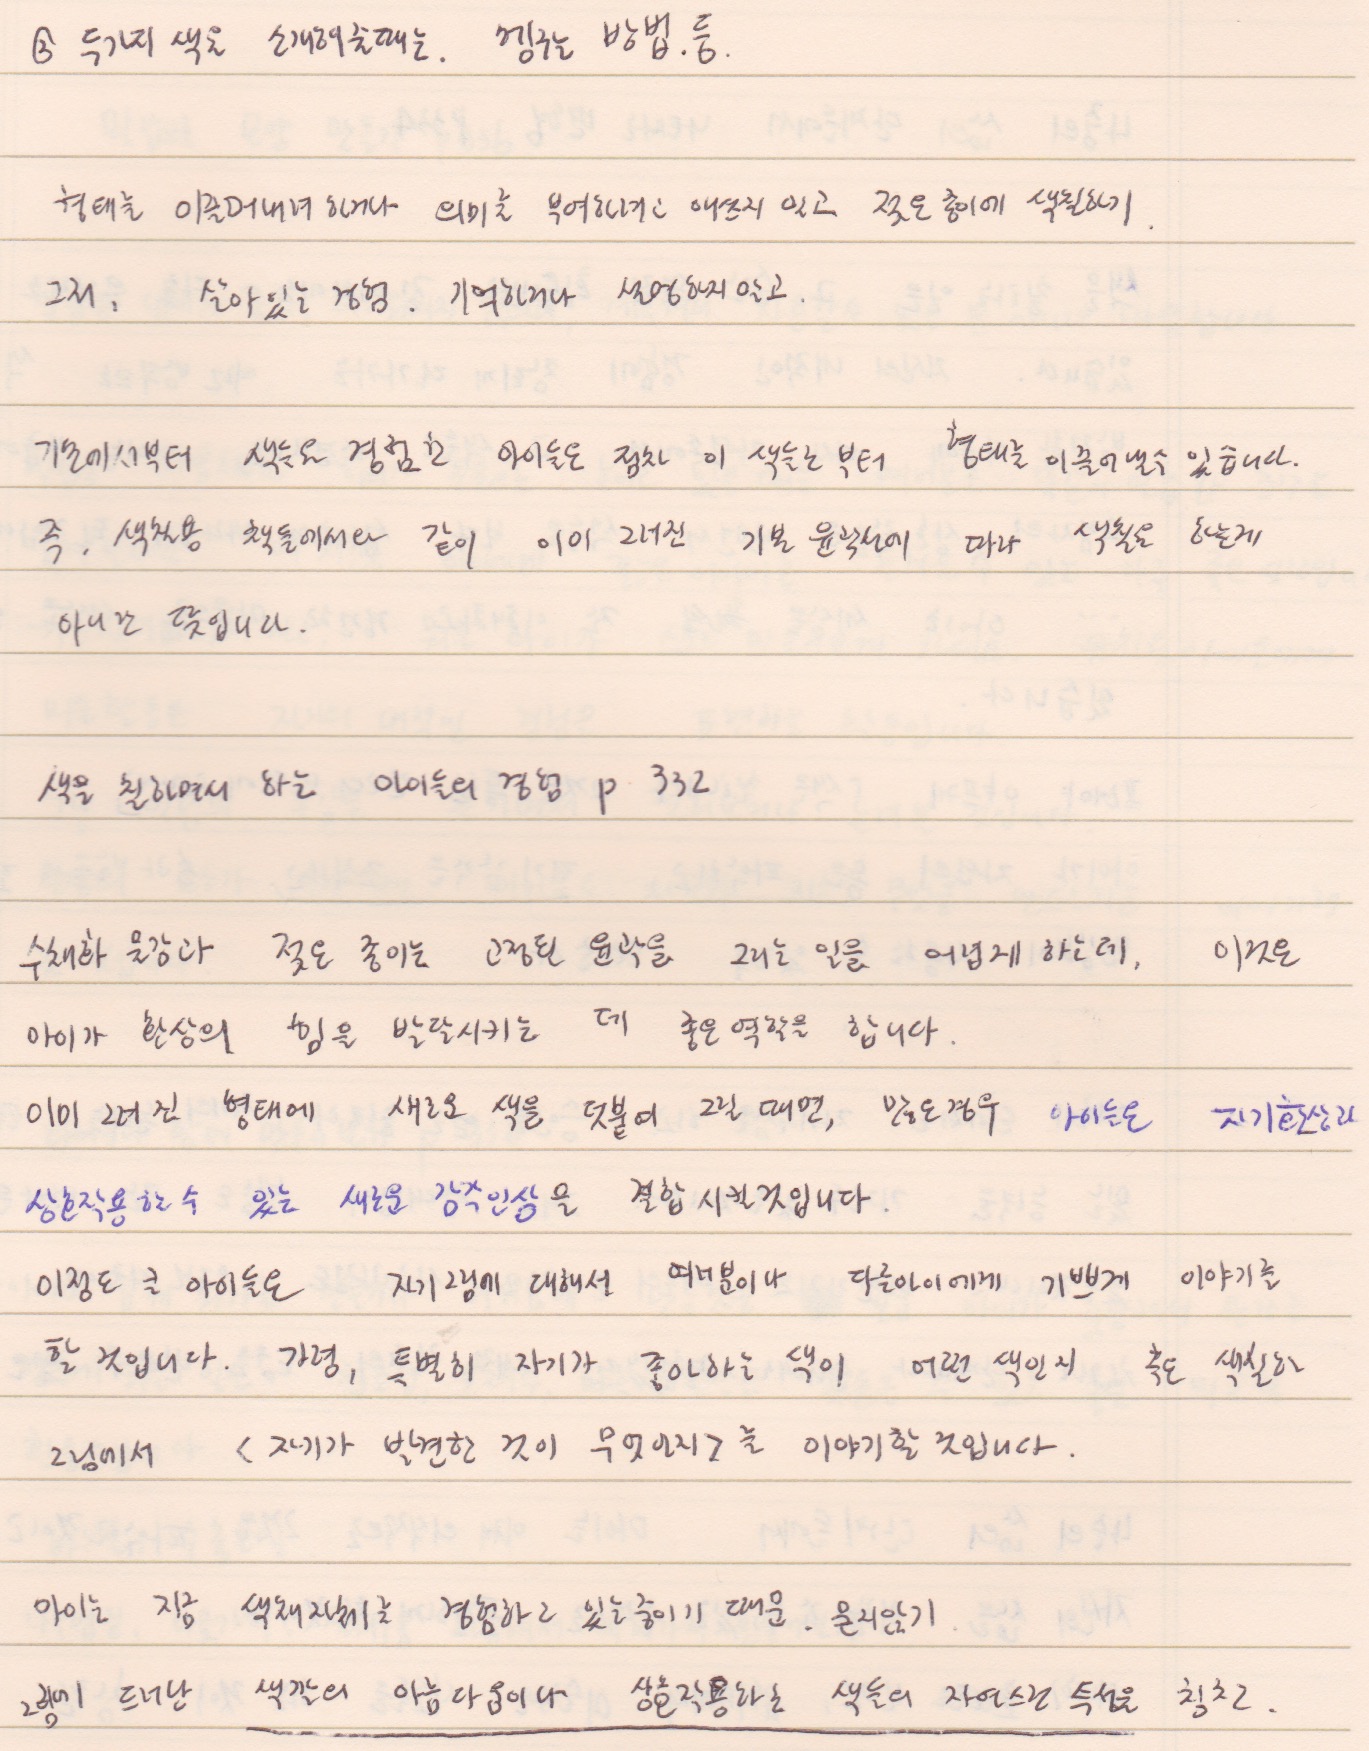 ③ 두가지 색을 소개해줄때는. 헹구는 방법.등.
형태를 이끌어내려 하거나 의미를 부여하려고 애쓰지 않고 젖은 종이에 색칠하기.
그저, 살아있는 경험. 기억하거나 설명하지않고.
기본에서부터 색들을 경험한 아이들은 점차 이 색들로부터 형태를 이끌어낼수 있습니다.
즉, 색칠용 책들에서와 같이 이미 그려진 기본 윤곽선에 따라 색칠을 하는게
아니란 뜻입니다.
색을 칠하면서 하는 아이들의 경험 p 332
수채화 물감과 젖은 종이는 고정된 윤곽을 그리는 일을 어렵게 하는데, 이것은
아이가 환상의 힘을 발달시키는 데 좋은 역할을 합니다.
이미 그려진 형태에 새로운 색을 덧붙여 그릴 때면, 많은경우 아이들은 자기환상과
상호작용할 수 있는 새로운 감각인상을 결합시킬것입니다.
이정도 큰 아이들은 자기그림에 대해서 여러분이나 다른아이에게 기쁘게 이야기를
할 것입니다. 가령, 특별히 자기가 좋아하는 색이 어떤 색인지 혹은 색칠한
그림에서 <자기가 발견한 것이 무엇인지>를 이야기할것입니다.
아이는 지금 색채자체를 경험하고 있는중이기 때문. 묻지않기.
그림에 드러난 색깔의 아름다움이나 상호작용하는 색들의 자연스런 특성을 칭찬.